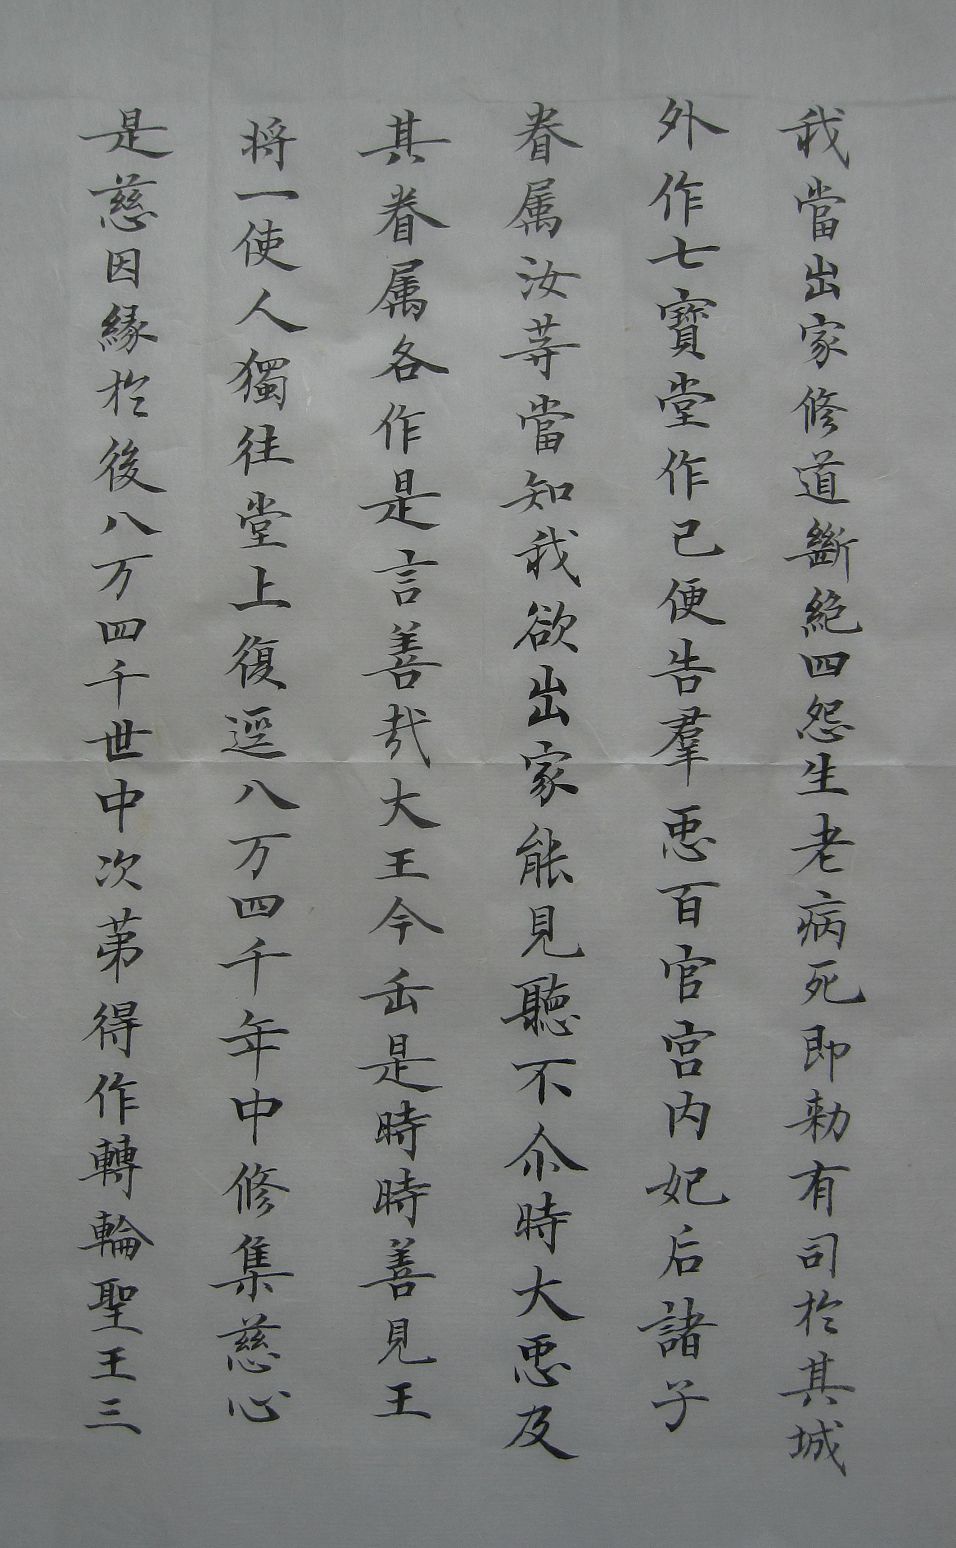 我當出家修道斷絕四怨生老病死即勅有司於其城
外作七寶堂作已便告羣𢘑百官宮内妃后諸子
眷属汝等當知我欲出家能見聽不尒時大𢘑及
其眷属各作是言善哉大王今𠙺是時時善見王
将一使人獨往堂上復逕八万四千年中修集慈心
是慈因緣於後八万四千世中次第得作轉輪聖王三